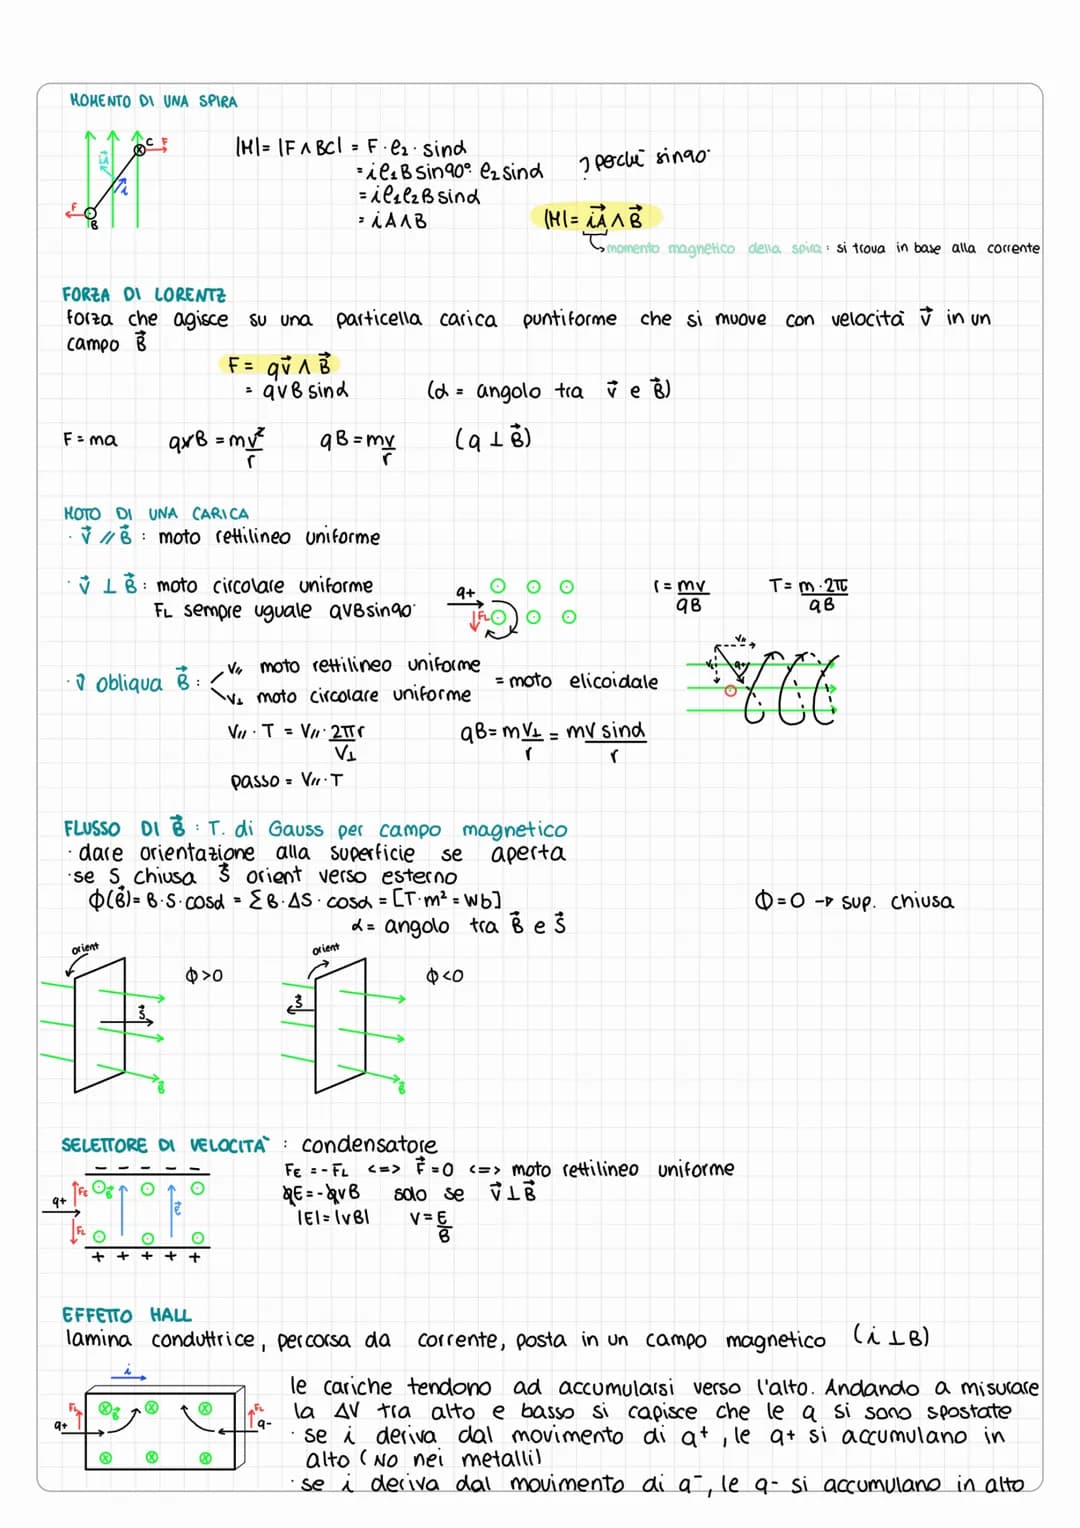 MOMENTO DI UNA SPIRA
|M|= |F ∧ BC| = F · ℓ₂ · sinα
= iℓ₁B sin90° ℓ₂ sinα
? perché sin90°
= iℓ₁ℓ₂B sinα
= iA∧B
|M|= iA⃗ ∧ B⃗
momento magnetico della spira : si trova in base alla corrente
C F
S⃗
i
F
B
FORZA DI LORENTZ
forza che agisce su una particella carica puntiforme che si muove con velocità v⃗ in un
campo B⃗
F = qv⃗ ∧ B⃗
= qvB sinα (α = angolo tra v⃗ e B⃗)
F = ma qvB = mv²/r qB = mv/r (q ⊥ B⃗)
MOTO DI UNA CARICA
· v⃗ // B⃗ : moto rettilineo uniforme
· v⃗ ⊥ B⃗ : moto circolare uniforme
FL sempre uguale qVBsin90°
q+
FL
r = mv/qB T = m·2π/qB
· v⃗ obliqua B⃗ :
V// moto rettilineo uniforme
V⊥ moto circolare uniforme
= moto elicoidale
V//
V⊥ q+
V// · T = V// · 2πr/V⊥ qB = mV⊥/r = mV sinα/r
passo = V// · T
FLUSSO DI B⃗ : T. di Gauss per campo magnetico
· dare orientazione alla superficie se aperta
· se S chiusa S⃗ orient verso esterno
Φ(B⃗)= B·S·cosα = ΣB·ΔS·cosα = [T·m² = Wb] Φ=0 → sup. chiusa
α = angolo tra B⃗ e S⃗
orient orient
Φ>0 Φ<0
S⃗ S⃗
B⃗ B⃗
SELETTORE DI VELOCITÀ : condensatore
FE = -FL <=> F⃗ = 0 <=> moto rettilineo uniforme
qE = -qvB solo se v⃗ ⊥ B⃗
|E| = |vB| v = E/B
- - - - - -
q+ FE B⃗ E⃗
FL
+ + + + +
EFFETTO HALL
lamina conduttrice, percorsa da corrente, posta in un campo magnetico (i ⊥ B)
i
FL B⃗ FL
q+ q-
le cariche tendono ad accumularsi verso l'alto. Andando a misurare
la ΔV tra alto e basso si capisce che le q si sono spostate
· se i deriva dal movimento di q⁺, le q+ si accumulano in
alto (NO nei metalli)
· se i deriva dal movimento di q⁻, le q- si accumulano in alto